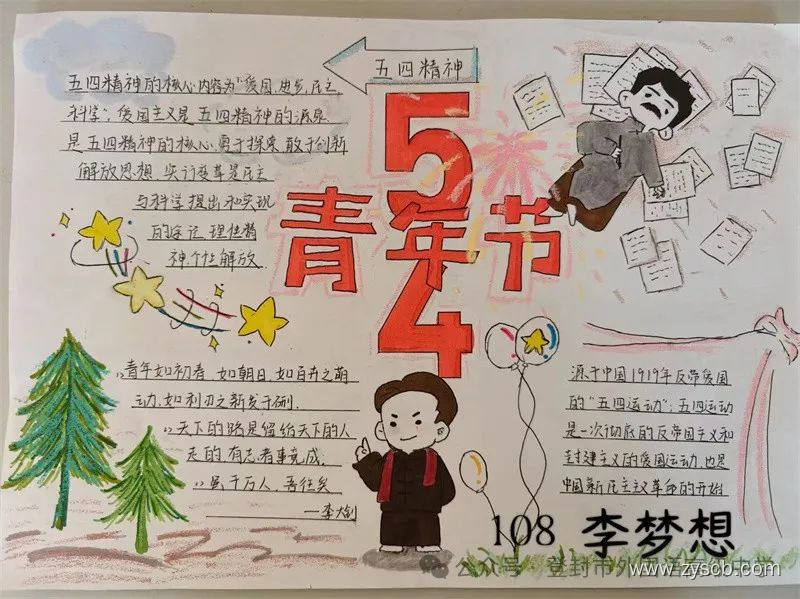 五四精神
五四精神的核心内容为"爱国、进步、民主
科学",爱国主义是五四精神的源泉
是五四精神的核心,勇于探索 敢于创新
解放思想 实行变革是民主
与科学提出和实现
的途径 理性精
神 个性解放
5
青年节
4
青年如初春 如朝日,如百卉之萌
动,如利刃之新发于硎.
天下的路是留给天下的人
走的,有志者事竟成.
虽千万人,吾往矣
—李大钊
源于中国1919年反帝爱国
的"五四运动",五四运动
是一次彻底的反帝国主义和
封建主义的爱国运动,也是
中国新民主主义革命的开始
108 李梦想
公众号 登封市外
www.zyscb.com